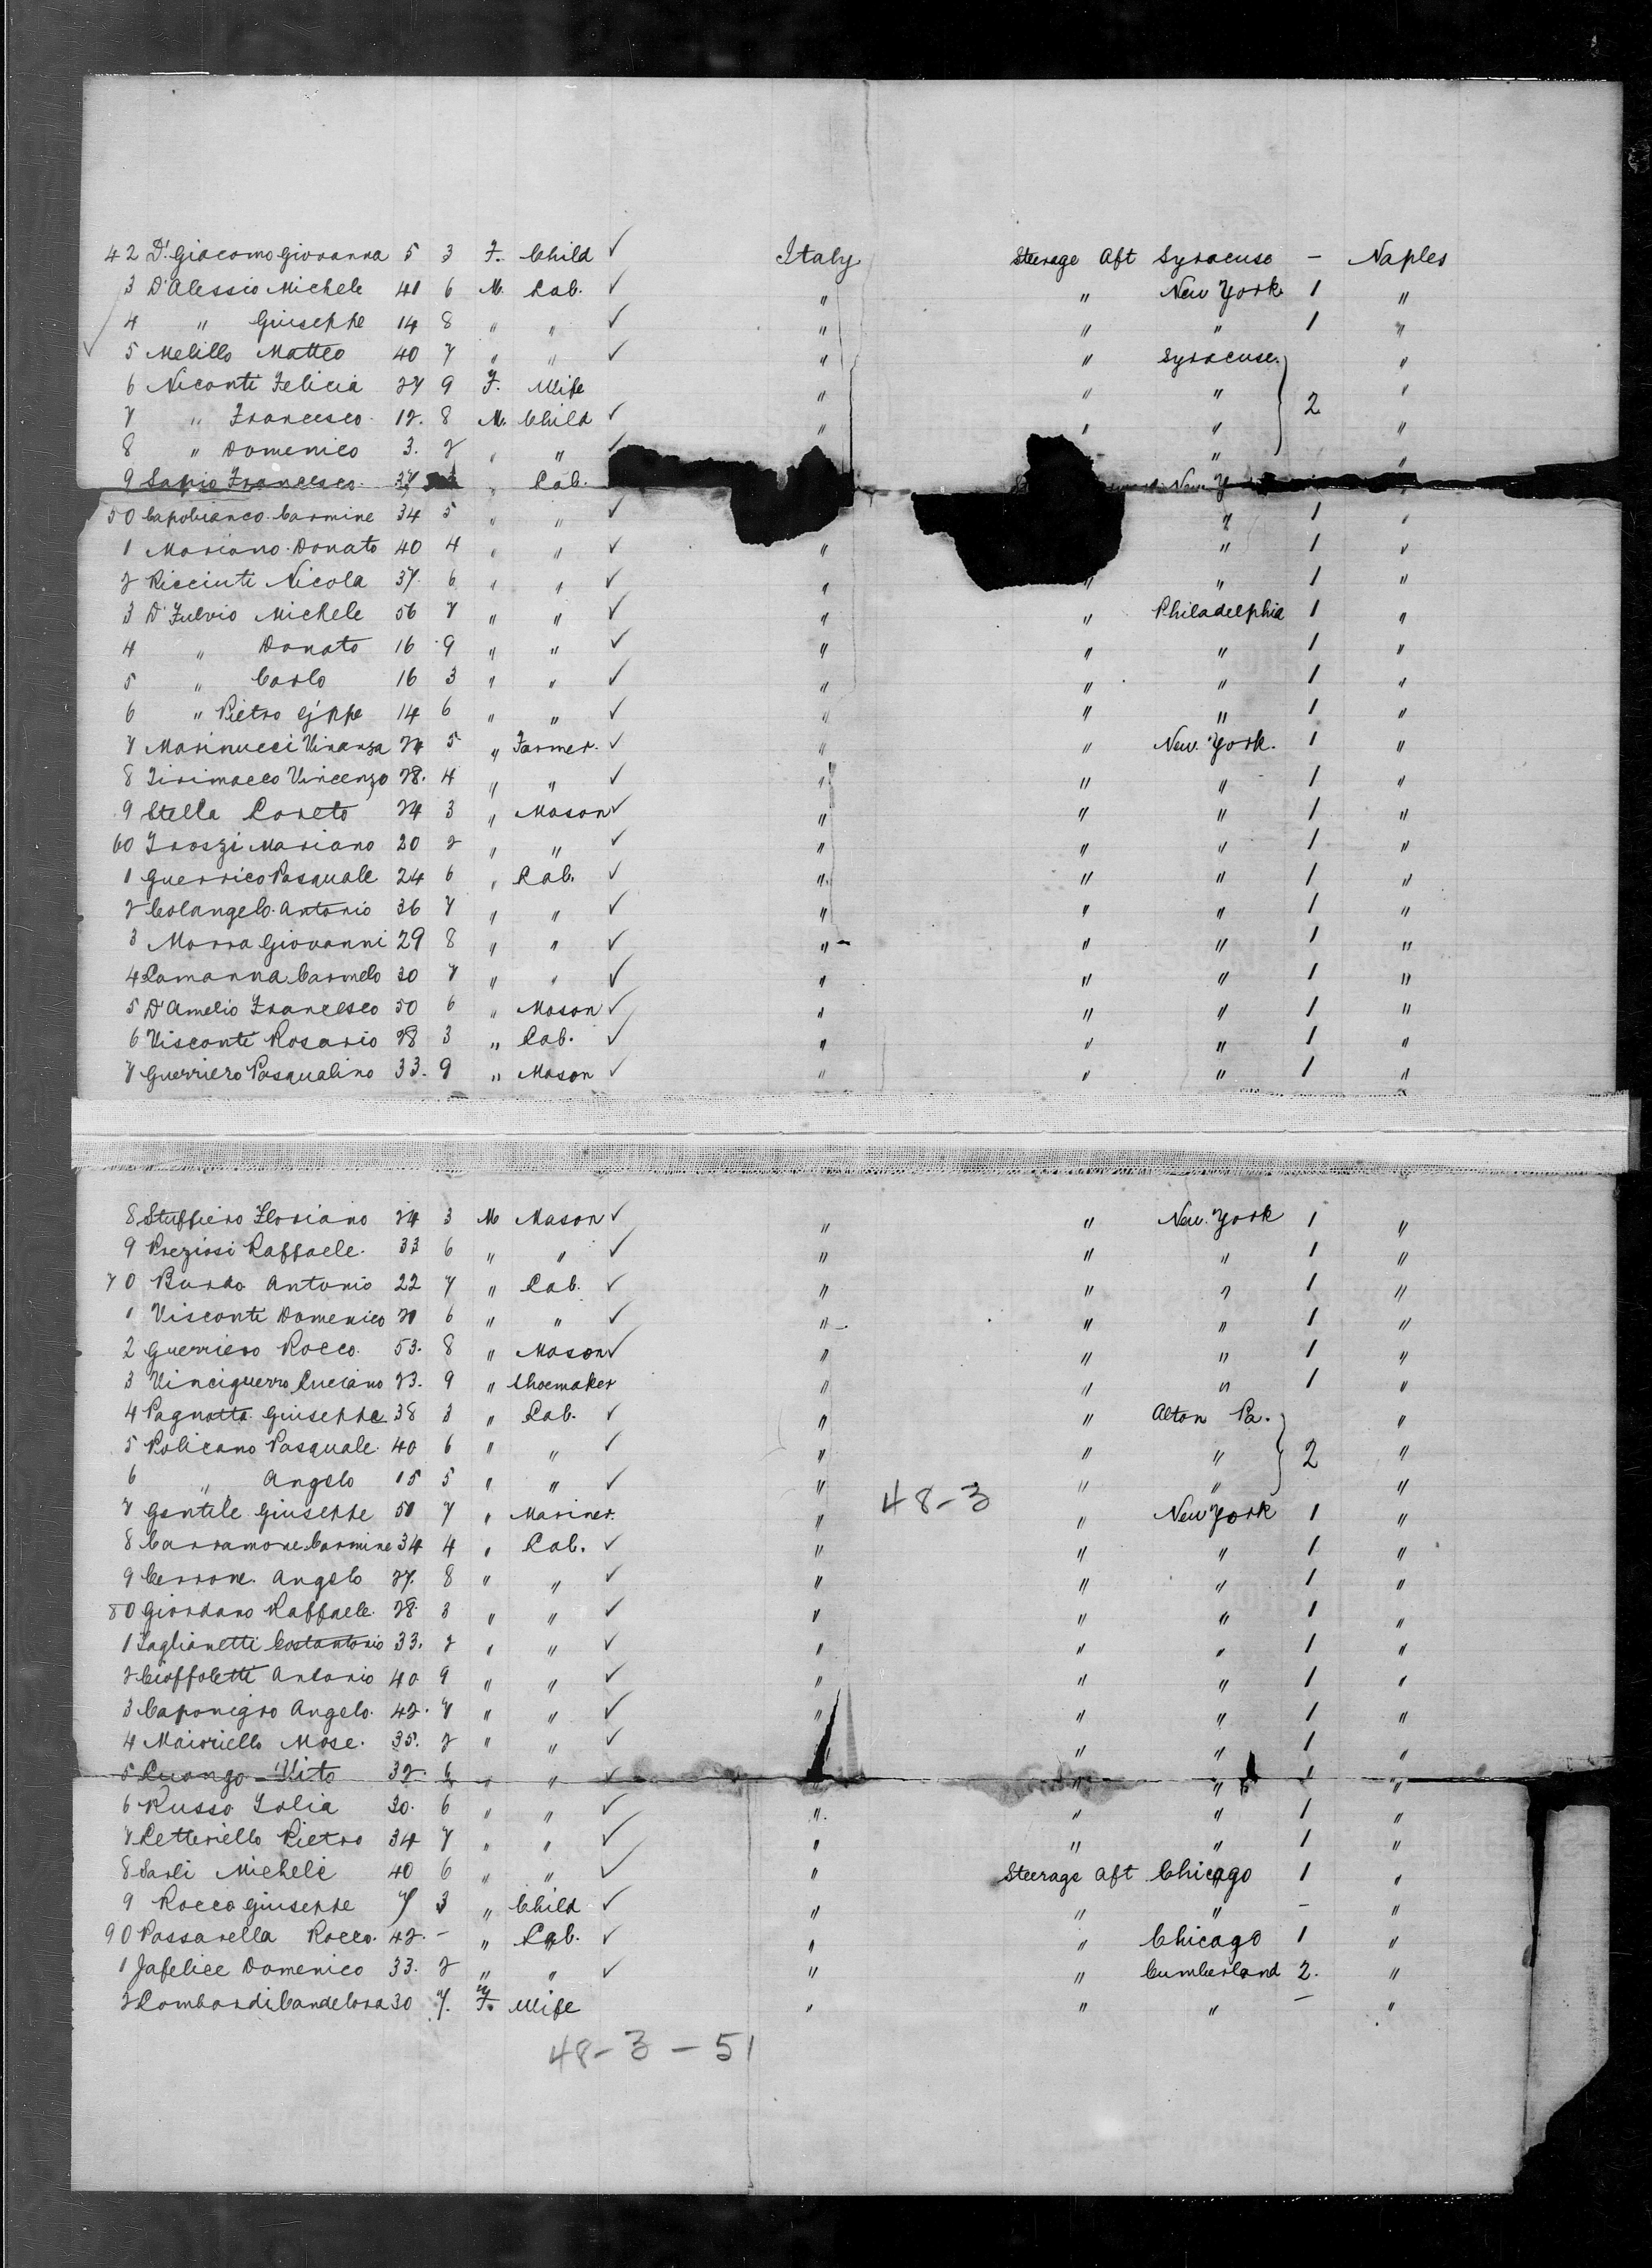 42 D'Giacomo Giovanna 5 3 F. Child ✓ Italy Steerage Aft Syracuse - Naples
3 D'Alessio Michele 41 6 M. Lab. ✓ " " New York 1 "
4 " Giuseppe 14 8 " " ✓ " " " 1 "
5 Melillo Matteo 40 7 " " ✓ " " Syracuse "
6 Niconti Felicia 27 9 F. Wife " " " 2 "
7 " Francesco 12. 8 M. Child ✓ " " " "
8 " Domenico 3. 2 " " ✓ " "
9 Sapio Francesco 37 " Lab. New Y
50 Capobianco Carmine 34 5 " " ✓ " 1 "
1 Mariano Donato 40 4 " " ✓ " " 1 "
2 Ricciuti Nicola 37. 6 " " ✓ " " " 1 "
3 D'Fulvio Michele 56 7 " " ✓ " " Philadelphia 1 "
4 " Donato 16 9 " " ✓ " " " 1 "
5 " Carlo 16 3 " " ✓ " " " 1 "
6 " Pietro G'ppe 14 6 " " ✓ " " " 1 "
7 Marinucci Vinanza 24 5 " Farmer. ✓ " " New York. 1 "
8 Tirimacco Vincenzo 28. 4 " " ✓ " " " 1 "
9 Stella Loreto 24 3 " Mason ✓ " " " 1 "
60 Mariano 20 2 " " ✓ " " " 1 "
1 Guerrico Pasquale 24 6 " Lab. ✓ " " " 1 "
2 Colangelo Antonio 36 7 " " ✓ " " " 1 "
3 Morra Giovanni 29 8 " " ✓ " " " 1 "
4 Lamanna Carmelo 30 7 " " ✓ " " " 1 "
5 D'Amelio Francesco 50 6 " Mason ✓ " " " 1 "
6 Visconti Rosario 28 3 " Lab. ✓ " " " 1 "
7 Guerriero Pasqualino 33. 9 " Mason ✓ " " " 1 "
8 Stuffiero Floriano 24 3 M Mason ✓ " " New York 1 "
9 Preziosi Raffaele. 33 6 " " ✓ " " " 1 "
70 Burdo Antonio 22 7 " Lab. ✓ " " " 1 "
1 Visconti Domenico 6 " " ✓ " " " 1 "
2 Guerriero Rocco. 53. 8 " Mason ✓ " " " 1 "
3 Vinciguerro Luciano 23. 9 " Shoemaker " " " 1 "
4 Pagnotta Giuseppe 38 3 " Lab. ✓ " " Alton Pa. "
5 Policano Pasquale. 40 6 " " ✓ " " " 2 "
6 " Angelo 15 5 " " ✓ " " " "
48-3
7 Gentile Giuseppe 50 7 " Mariner. " " New York 1 "
8 Carramone Carmine 34 4 " Lab. ✓ " " " 1 "
9 Cerrone. Angelo 27. 8 " " ✓ " " " 1 "
80 Giordano Raffaele. 28. 3 " " ✓ " " " 1 "
1 Taglianetti Costantonio 33. 2 " " ✓ " " " 1 "
2 Cioffoletti Antonio 40. 9 " " ✓ " " " 1 "
3 Caponigro Angelo. 42. 7 " " ✓ " " " 1 "
4 Mairiello Mose. 35. 2 " " ✓ " " 1 "
5 Luongo Vito 32 6 " " ✓ " " " 1 "
6 Russo Iolia 30. 6 " " ✓ " " " 1 "
7 Letteriello Pietro 34 7 " " ✓ " " " 1 "
8 Sarli Michele 40 6 " " ✓ " Steerage Aft Chicago 1 "
9 Rocco Giuseppe 7 3 " Child ✓ " " " - "
90 Passarella Rocco. 42. - " Lab. ✓ " " Chicago 1 "
1 Jafelice Domenico 33. 2 " " ✓ " " Cumberland 2. "
2 Lombardi Candelora 30 7. F. Wife " " " - "
48-3-51